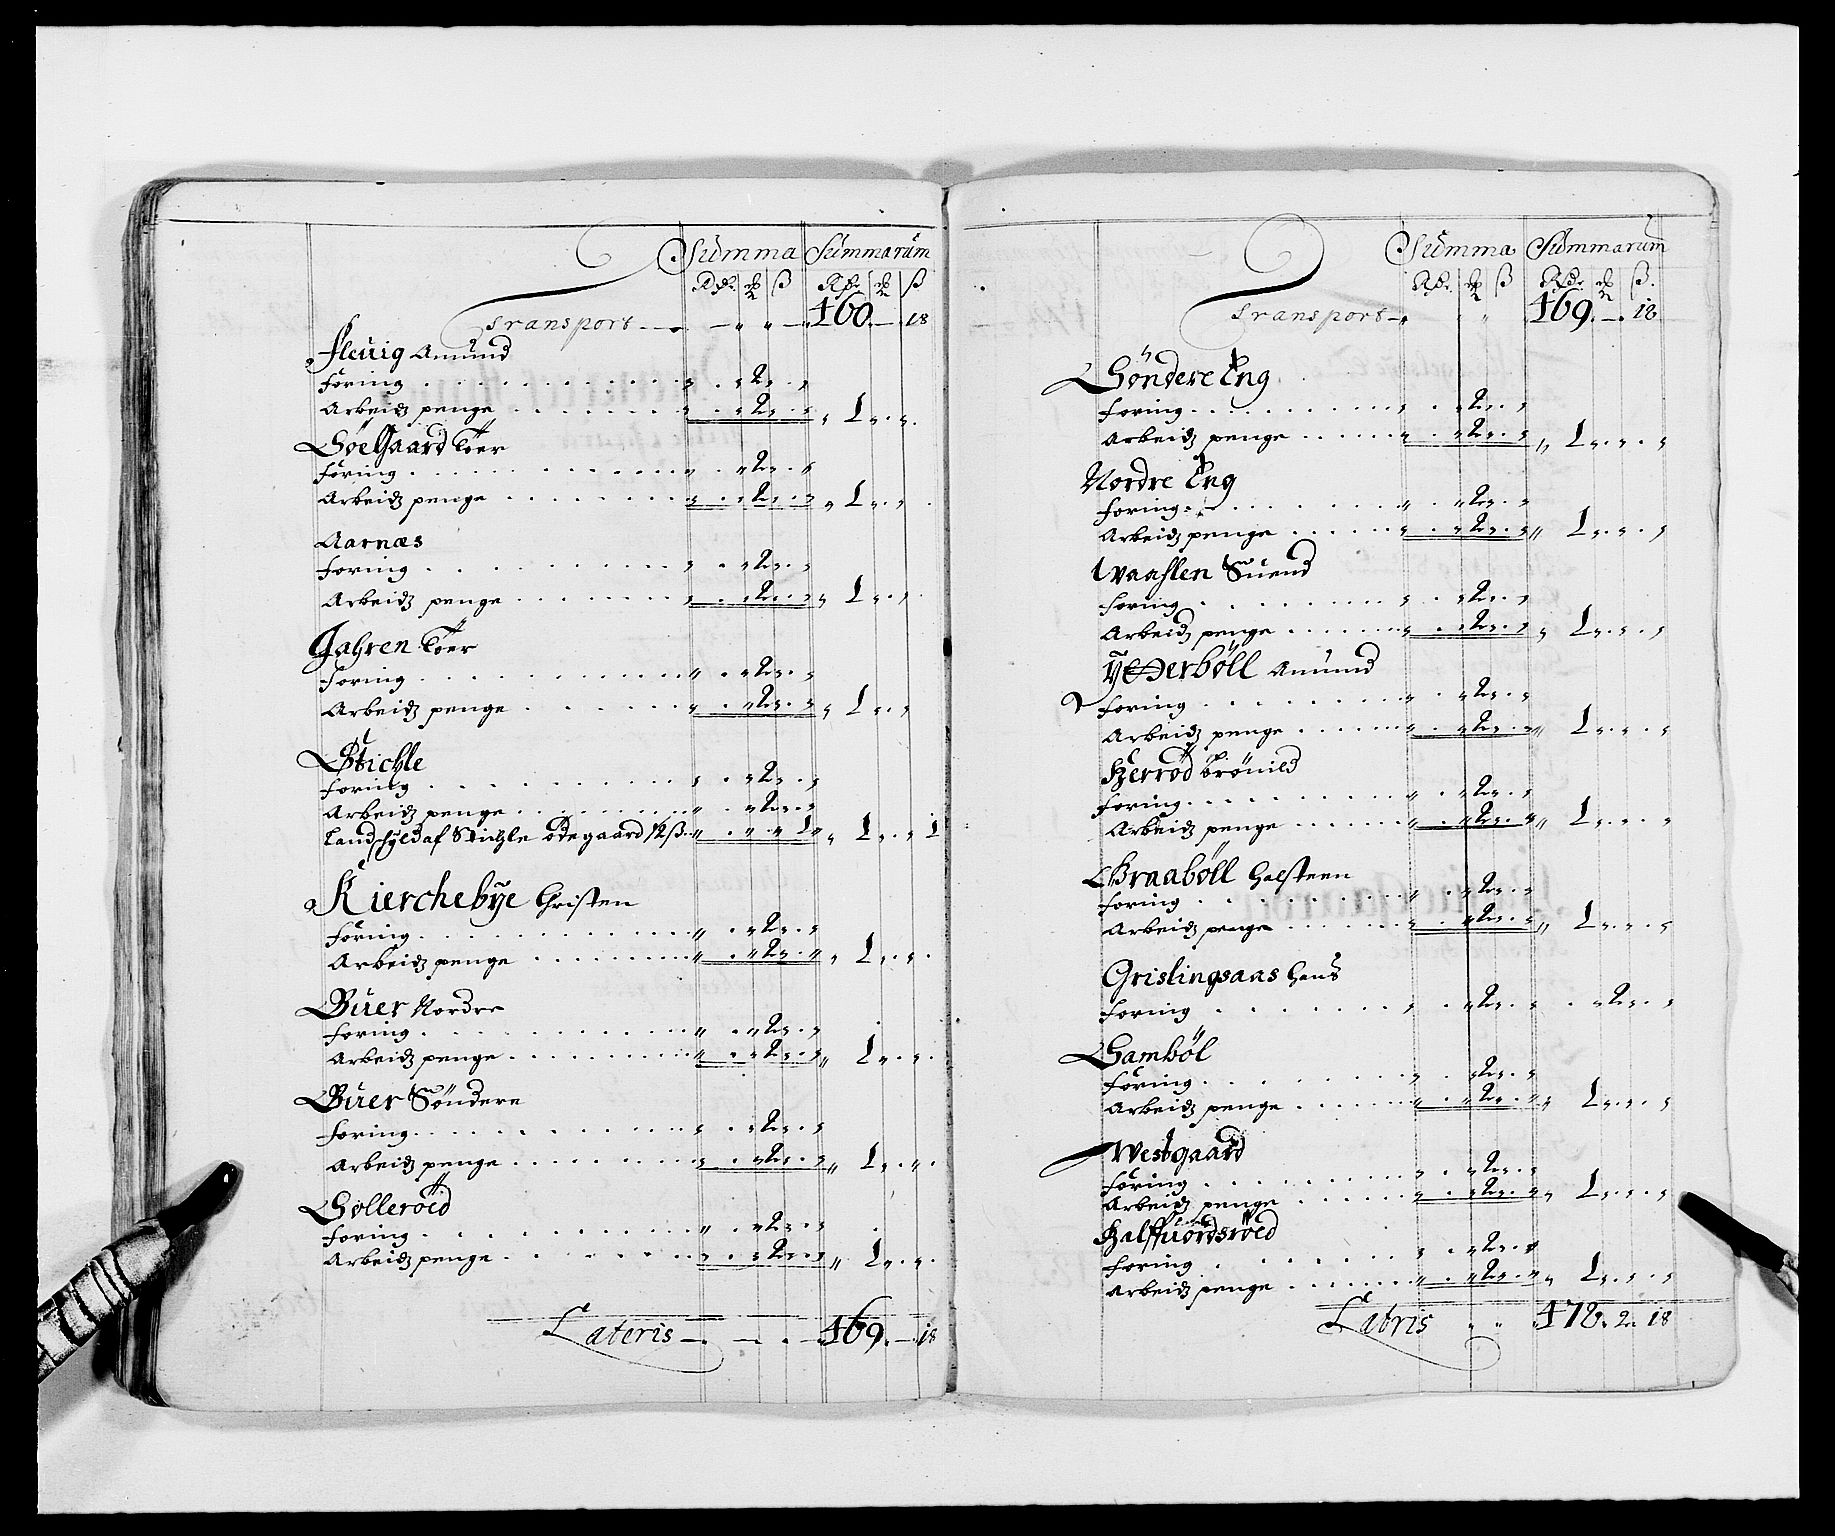 Summa Summarum
Rdr. ß Rdr. ß
Transport 460. — 18
Fleuig Amund
Foring 2
Arbeidz penge 2 1
Söegaard Toer
Foring 2
Arbeidz penge 2 1
Aarnæs
Foring 2
Arbeidz penge 2 1
Jahren Toer
Foring 2
Arbeidz penge 2 1
Stichle
Foring 2
Arbeidz penge 2
Landschyld af Stichle ödegaard 12 ß
Kierchebye Christen
Foring 2
Arbeidz penge 2 1
Buer Nordre
Foring 2
Arbeidz penge 2 1
Buer Söndere
Foring 2
Arbeidz penge 2 1
Solleröed
Foring 2
Arbeidz penge 2 1
Lateris 469. — 18
Summa Summarum
Rdr. ß Rdr. ß
Transport 469. — 18
Söndere Eng
Foring 2
Arbeidz penge 2 1
Nordre Eng
Foring 2
Arbeidz penge 2 1
Waahlen Suend
Foring 2
Arbeidz penge 2 1
Ytterböll Amund
Foring 2
Arbeidz penge 2 1
Herröd Brönild
Foring 2
Arbeidz penge 2 1
Braaböll Halsteen
Foring 2
Arbeidz penge 2 1
Grislingsaas Hans
Foring 2 2
Gamböl
Foring 2
Arbeidz penge 2 1
Westgaard
Foring 2
Arbeidz penge 2 1
Halffuordsröed
Foring 2
Arbeidz penge 2 1
Latris 478. 2. 18